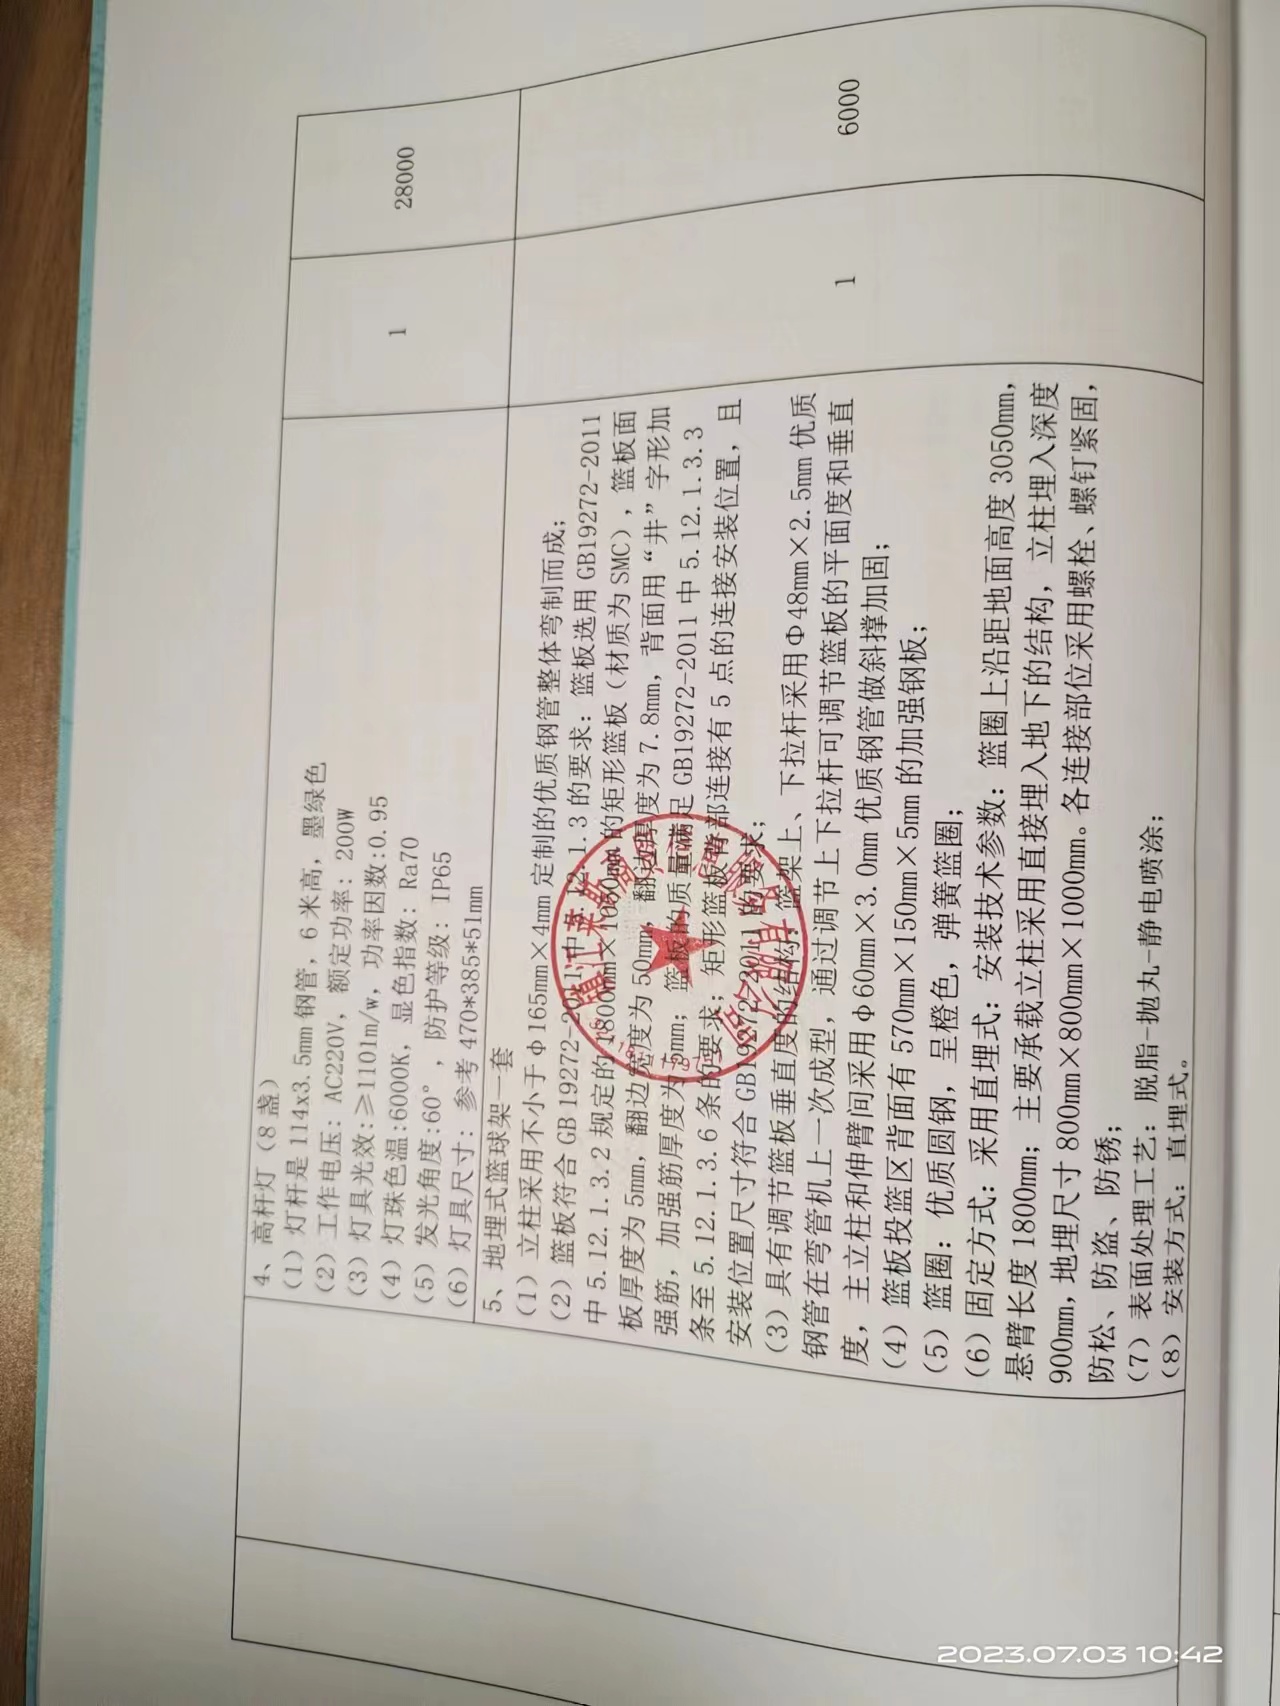 4、高杆灯（8 盏）
（1）灯杆是 114x3.5mm 钢管，6 米高，墨绿色
（2）工作电压：AC220V，额定功率：200W
（3）灯具光效:≥110lm/w，功率因数:0.95
（4）灯珠色温:6000K，显色指数：Ra70
（5）发光角度:60°，防护等级：IP65
（6）灯具尺寸：参考 470*385*51mm
1
28000
5、地埋式篮球架一套
（1）立柱采用不小于φ165mm×4mm 定制的优质钢管整体弯制而成；
（2）篮板符合 GB 19272-2011 中 5.12.1.3 的要求：篮板选用 GB19272-2011
中 5.12.1.3.2 规定的 1800mm×1050mm 的矩形篮板（材质为 SMC），篮板面
板厚度为 5mm，翻边宽度为 50mm，翻边厚度为 7.8mm，背面用“井”字形加
强筋，加强筋厚度为 5mm；篮板的质量满足 GB19272-2011 中 5.12.1.3.3
条至 5.12.1.3.6 条的要求；矩形篮板背部连接有 5 点的连接安装位置，且
安装位置尺寸符合 GB19272-2011 的要求；
（3）具有调节篮板垂直度的结构，篮架上、下拉杆采用Φ48mm×2.5mm 优质
钢管在弯管机上一次成型，通过调节上下拉杆可调节篮板的平面度和垂直
度，主立柱和伸臂间采用φ60mm×3.0mm 优质钢管做斜撑加固；
（4）篮板投篮区背面有 570mm×150mm×5mm 的加强钢板；
（5）篮圈：优质圆钢，呈橙色，弹簧篮圈；
（6）固定方式：采用直埋式：安装技术参数：篮圈上沿距地面高度 3050mm，
悬臂长度 1800mm；主要承载立柱采用直接埋入地下的结构，立柱埋入深度
900mm，地埋尺寸 800mm×800mm×1000mm。各连接部位采用螺栓、螺钉紧固，
防松、防盗、防锈；
（7）表面处理工艺：脱脂-抛丸-静电喷涂；
（8）安装方式：直埋式。
1
6000
2023.07.03 10:42